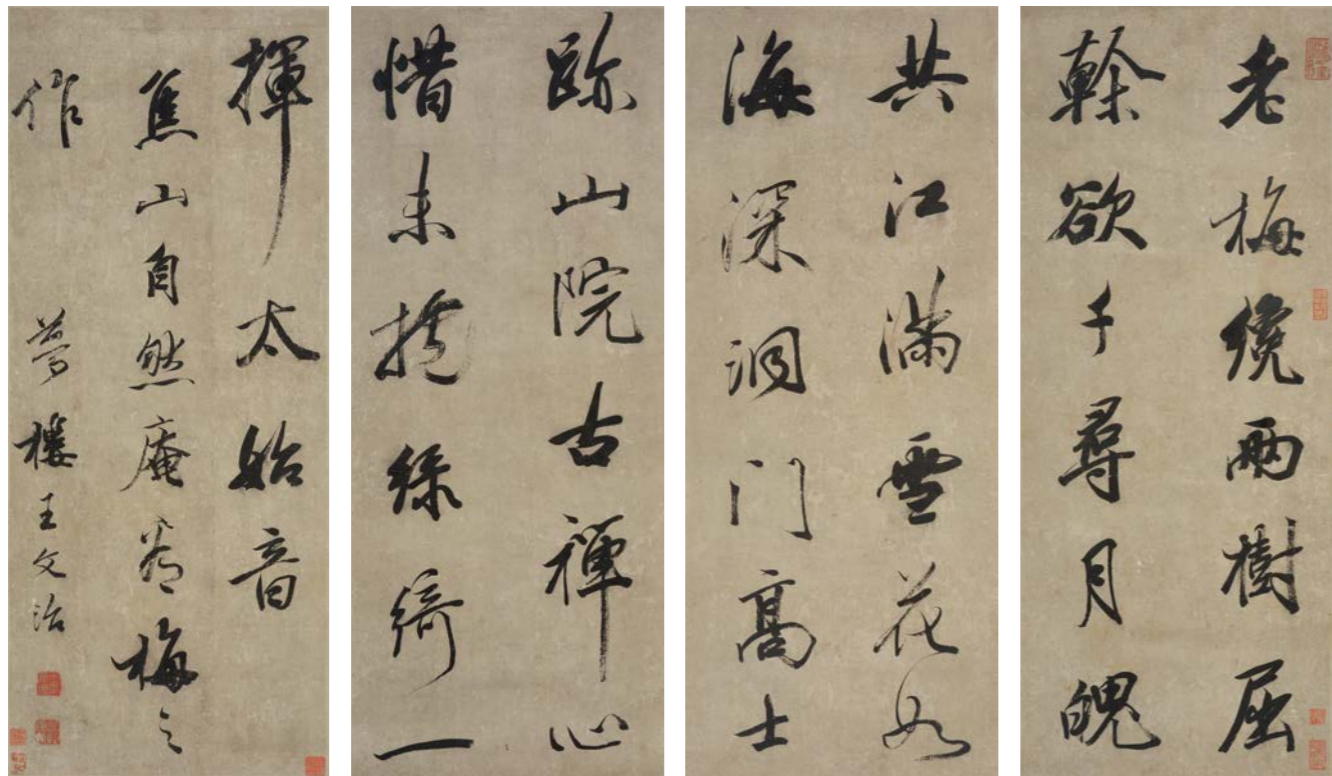 老梅纔兩樹屈
榦欲千尋月魄
共江滿雪花如
海深洞门高士
跡山院古禪心
惜未携綠綺一
揮太始音
焦山自然庵看梅之
作 夢樓王文治